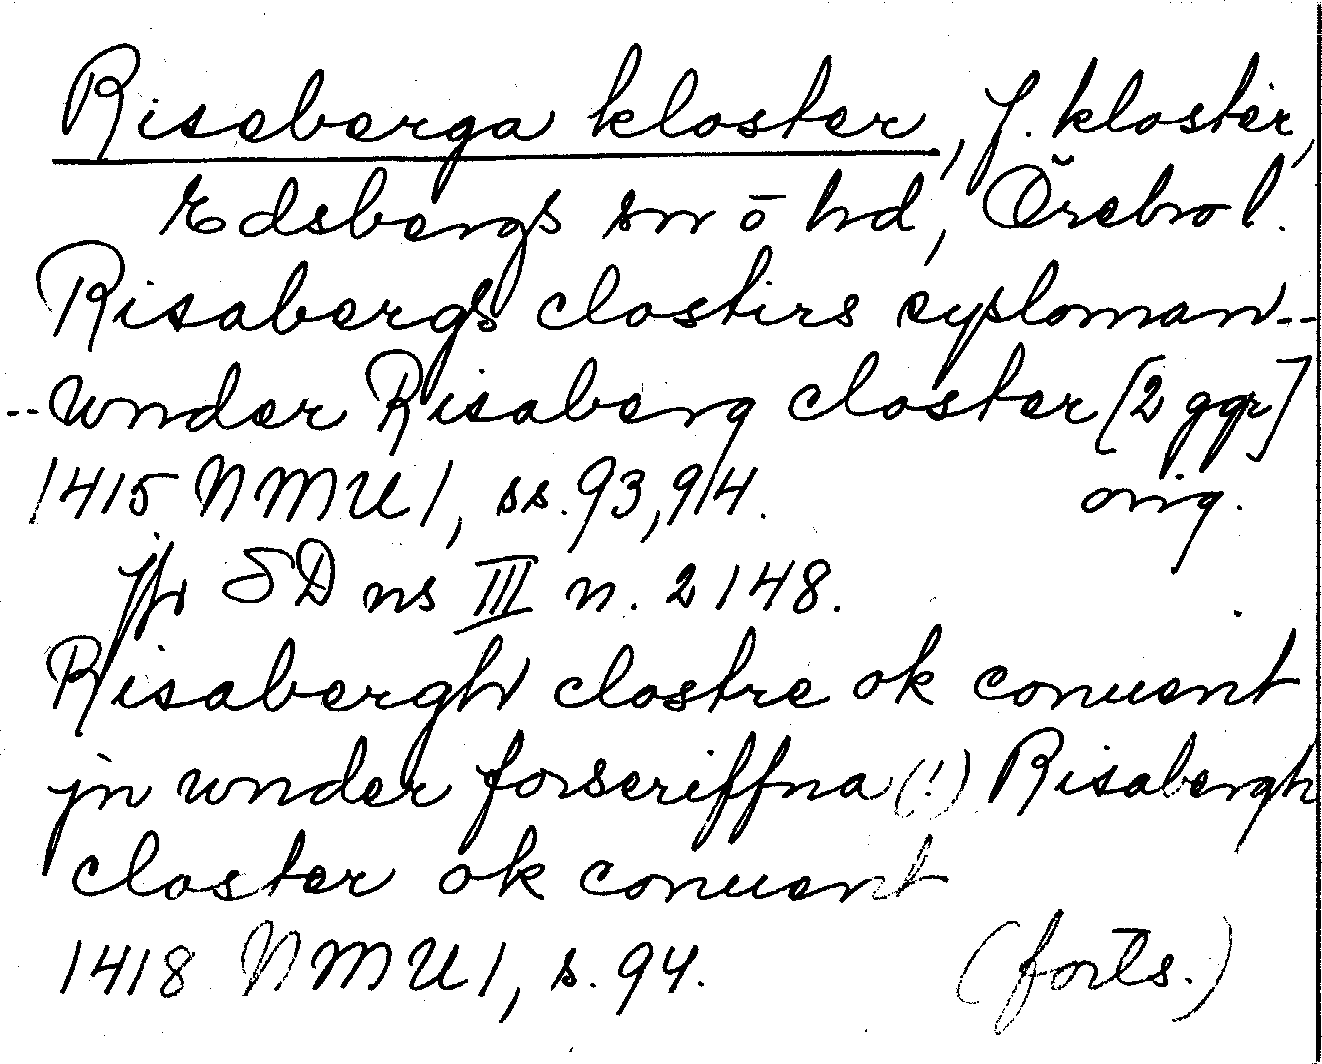 Riseberga kloster, f. kloster,
Edsbergs sn o hd, Örebro l.
Risabergs clostirs sysloman--
--wnder Risaberg closter [2 ggr]
1415 NMU 1, ss. 93, 94. orig.
jfr SD ns III n. 2148.
Risabergh clostre ok conuent
jn wnder forscriffna (!) Risabergh
closter ok conuent
1418 NMU 1, s. 94. (forts.)